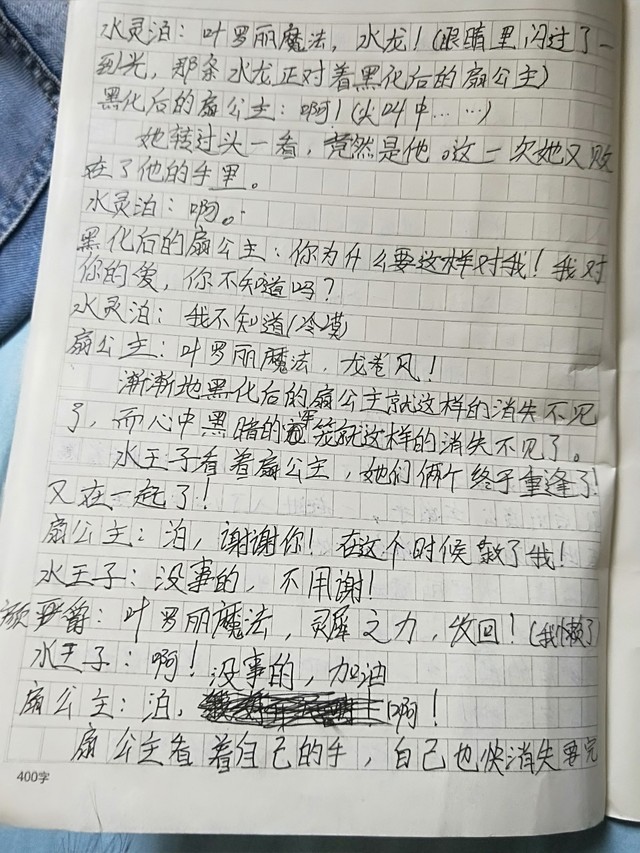 水灵泊：叶罗丽魔法，水龙！(眼睛里闪过了一
到光，那条水龙正对着黑化后的扇公主)
黑化后的扇公主：啊！(尖叫中……)
她转过头一看，竟然是他。这一次她又败
在了他的手里。
水灵泊：啊。
黑化后的扇公主：你为什么要这样对我！我对
你的爱，你不知道吗？
水灵泊：我不知道(冷漠)
扇公主：叶罗丽魔法，龙卷风！
渐渐地黑化后的扇公主就这样的消失不见
了，而心中黑暗的牢笼就这样的消失不见了。
水王子看着扇公主，她们俩个终于重逢了！
又在一起了！
扇公主：泊，谢谢你！在这个时候救了我！
水王子：没事的，不用谢！
颜爵：叶罗丽魔法，灵犀之力，收回！(我懒了
水王子：啊！没事的，加油
扇公主：泊，啊！
扇公主看着自己的手，自己也快消失要完
400字